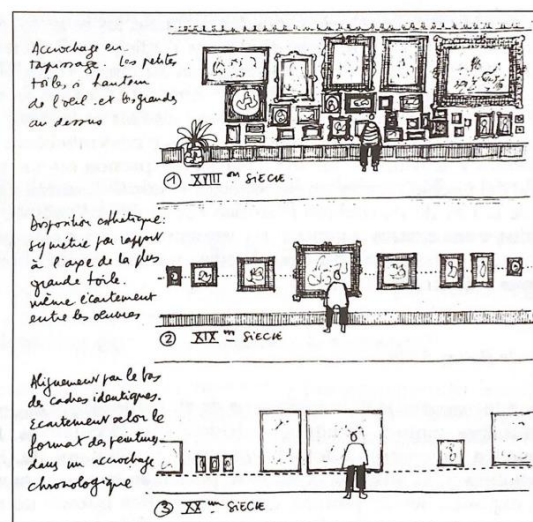 Accrochage en
tapissage. Les petites
toiles à hauteur
de l'oeil et les grandes
au dessus
① XVIII em SIECLE
Disposition esthétique:
symétrie par rapport
à l'axe de la plus
grande toile.
même écartement
entre les œuvres
② XIX em SIECLE
Alignement par le bas
des cadres identiques.
Ecartement selon le
format des peintures
dans un accrochage
chronologique
③ XX em SIECLE